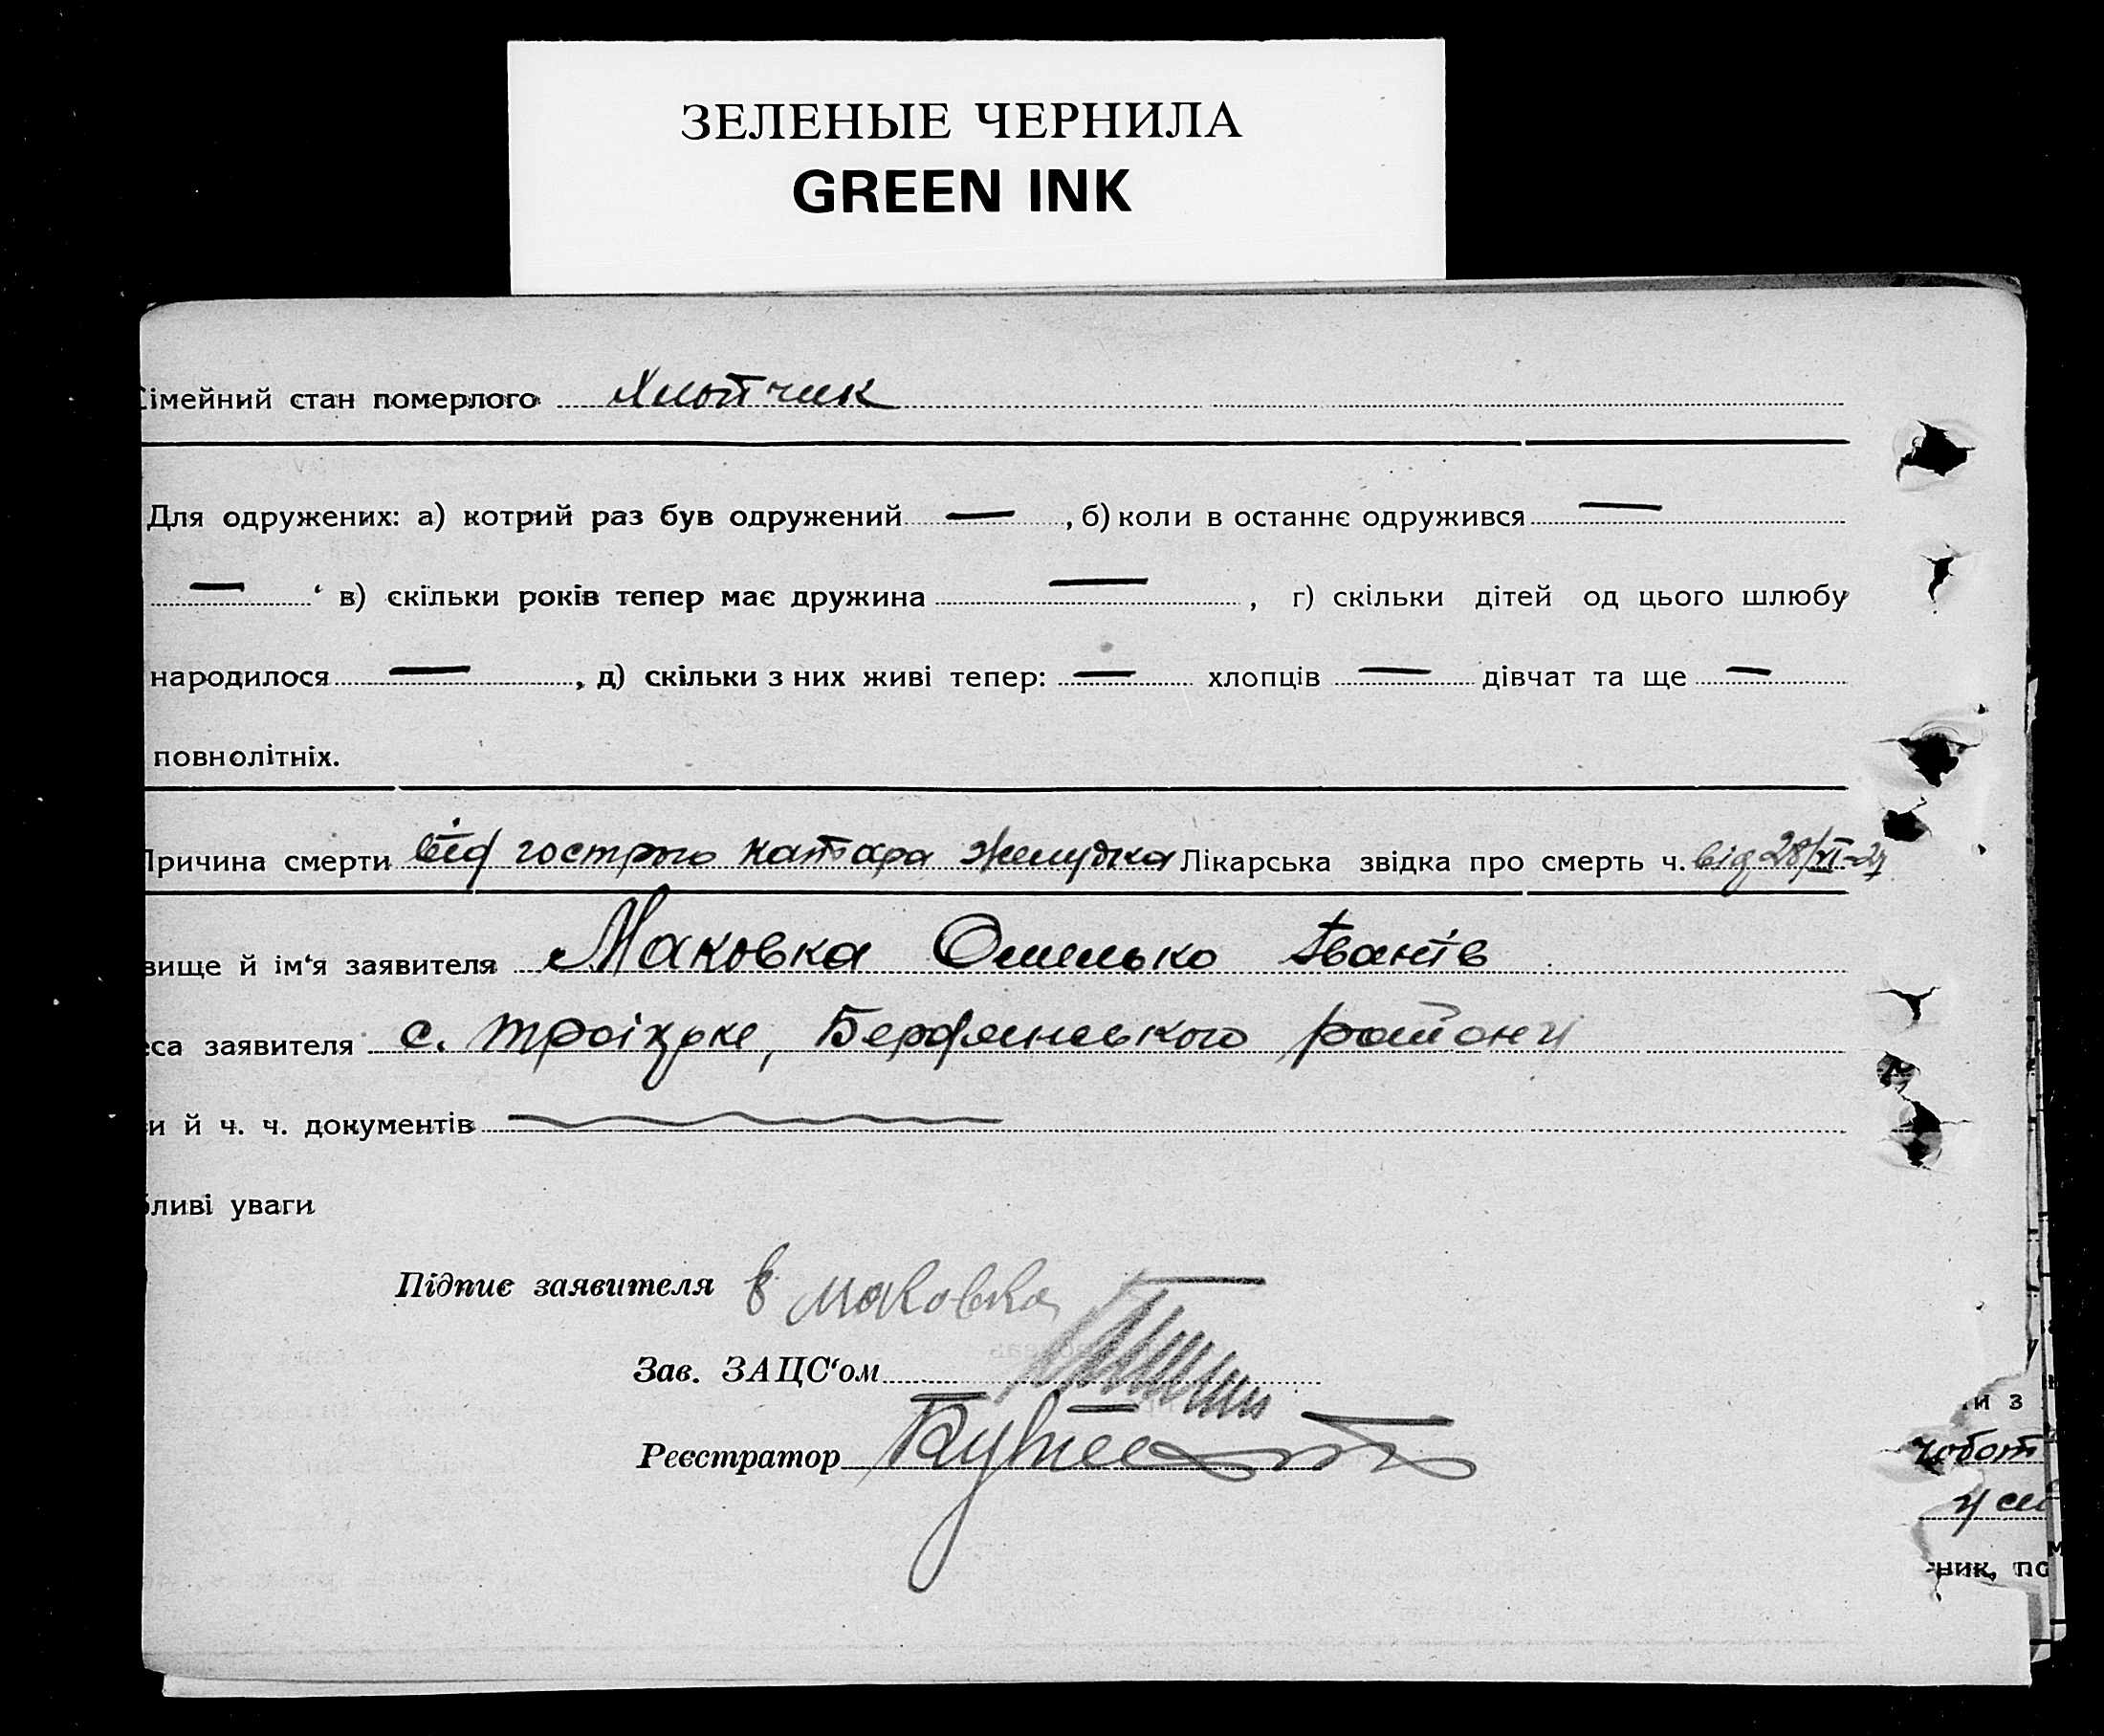 ЗЕЛЕНЫЕ ЧЕРНИЛА
GREEN INK
Сімейний стан померлого Хлопчик
Для одружених: а) котрий раз був одружений — , б) коли в останнє одружився —
— ‘ в) скільки років тепер має дружина — , г) скільки дітей од цього шлюбу
народилося — , д) скільки з них живі тепер: — хлопців — дівчат та ще —
повнолітніх.
Причина смерти від гострого катара желудка Лікарська звідка про смерть ч. від 28/VI-27
вище й ім‘я заявителя Маковка Омелько Іванів
еса заявителя с. Троіцьке, Бердянського району
и й ч. ч. документів
бливі уваги
Підпис заявителя Е Маковка
Зав. ЗАЦС‘ом
Реєстратор
и з
чобот
у се
ник, по